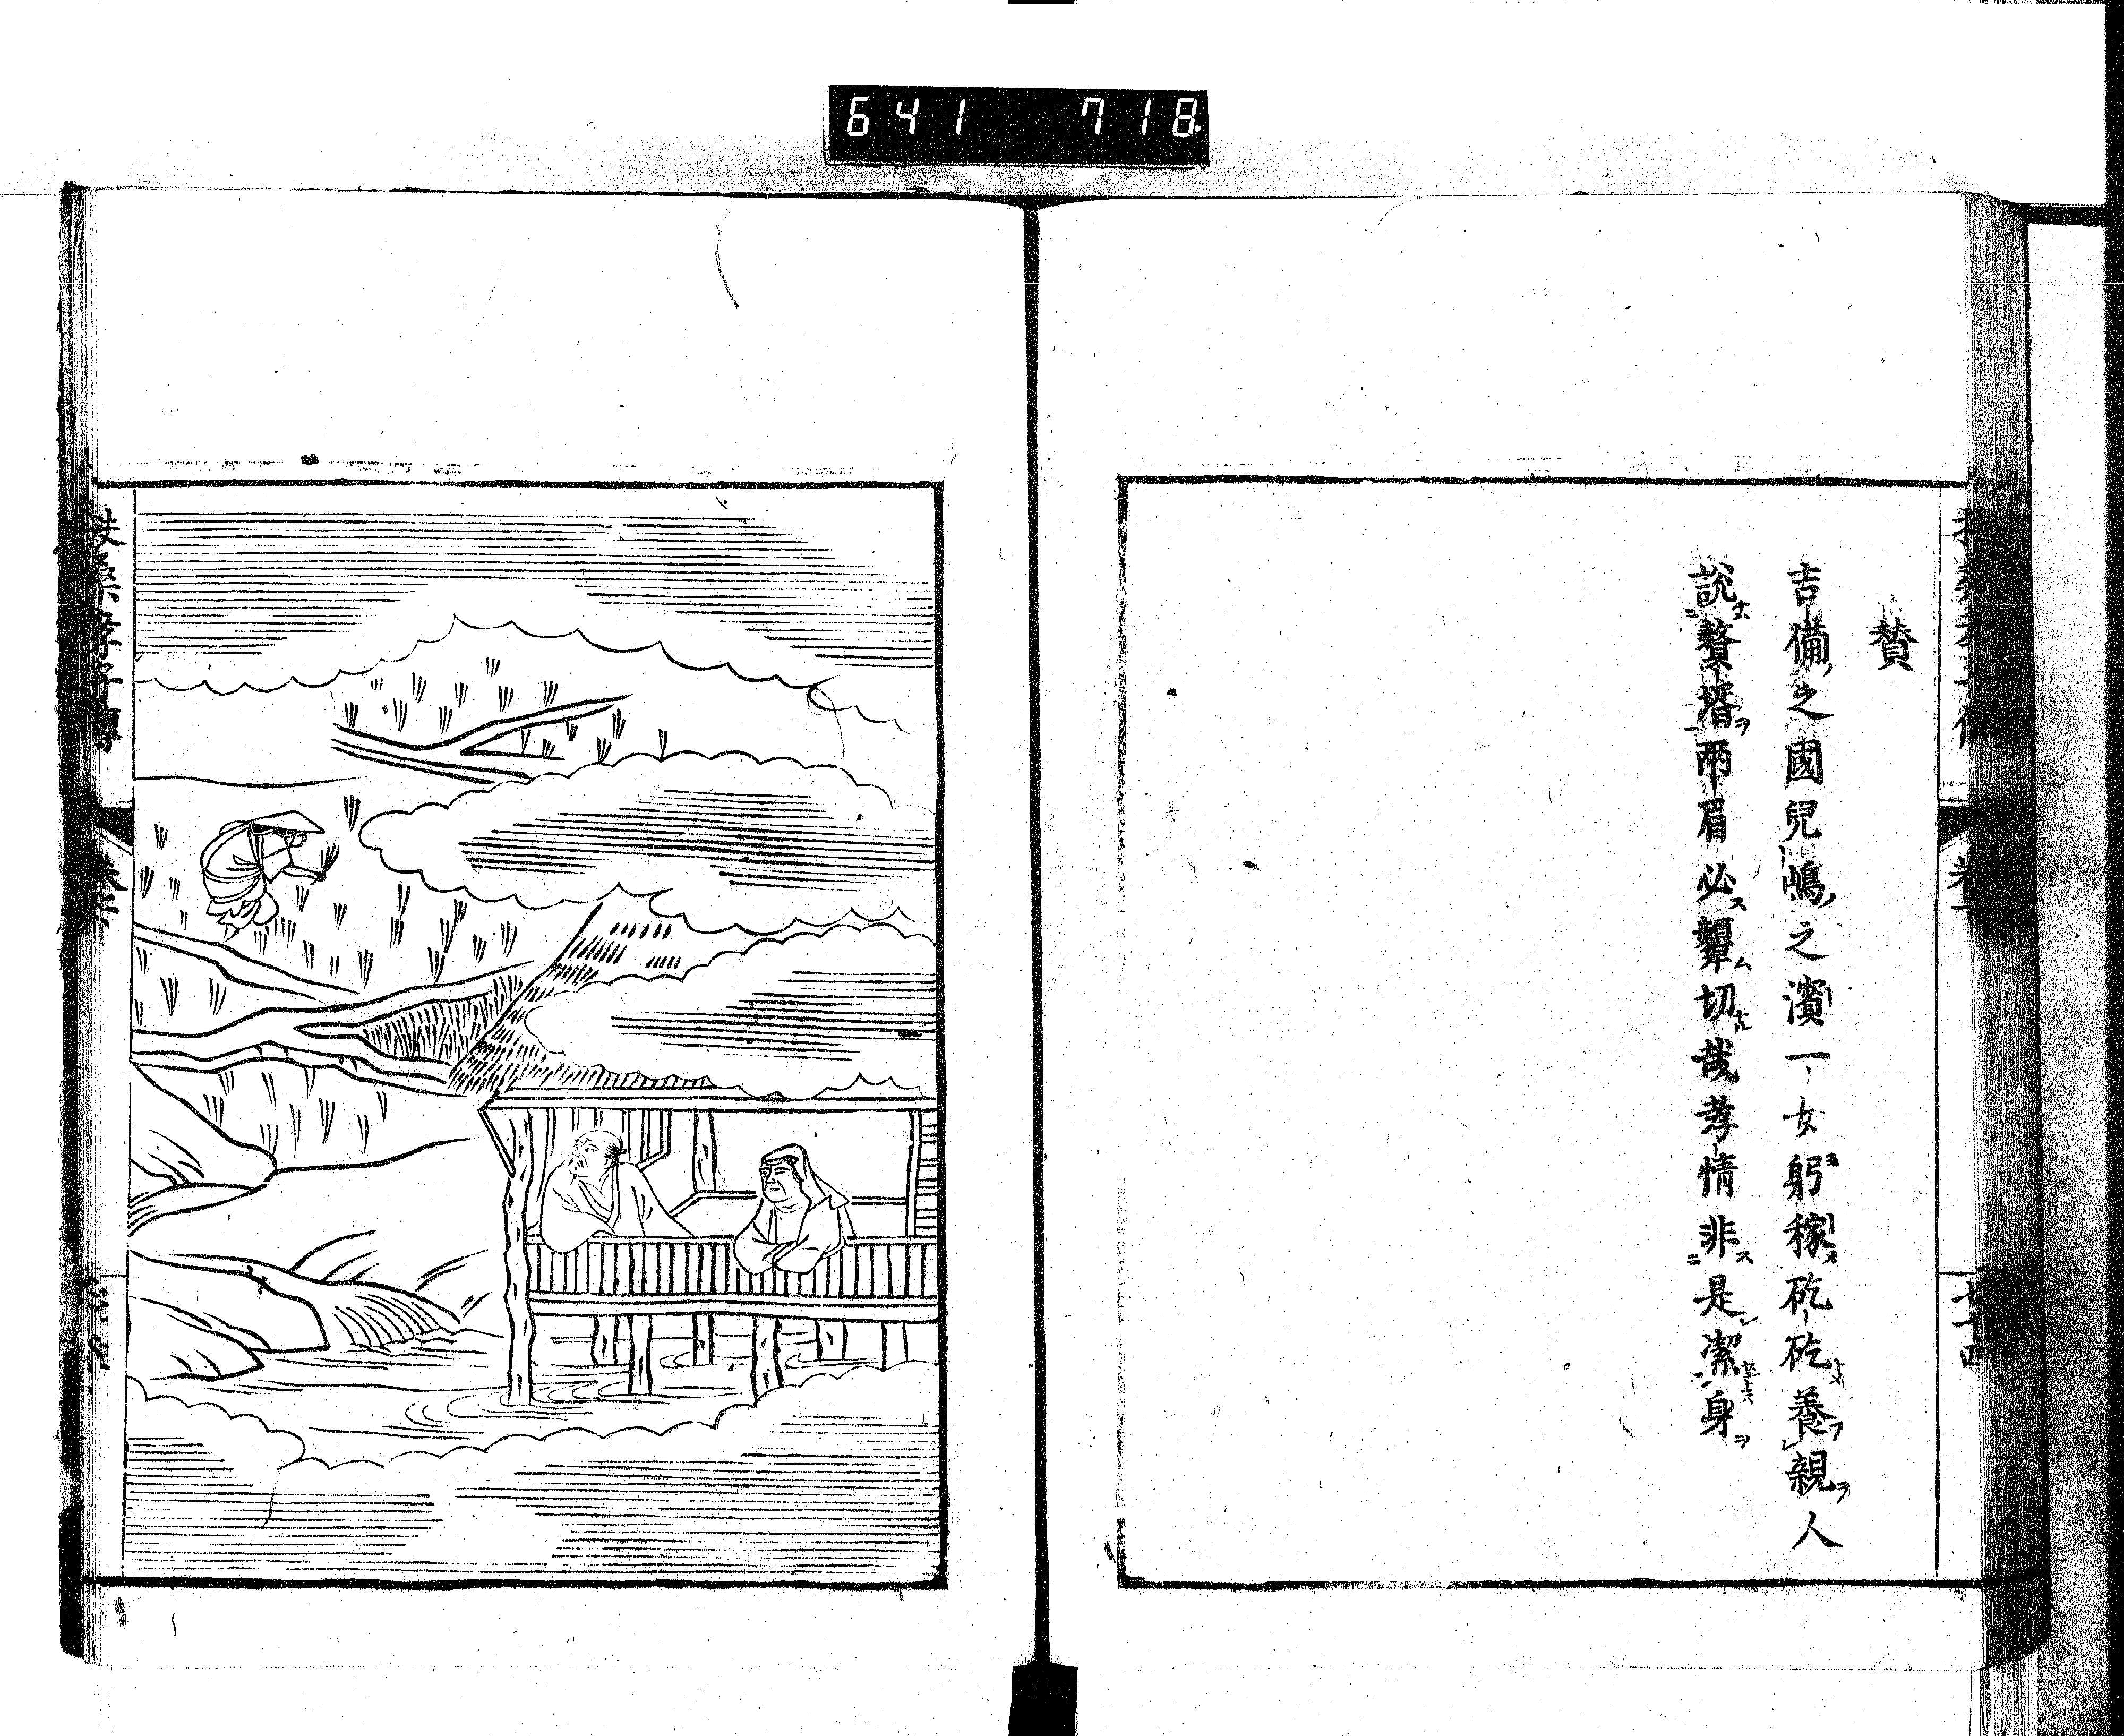 641 718
賛
吉備之國兒嶋之濱一女躬稼矻矻養親人
説贅壻兩眉必顰切哉孝情非是潔身
七十四
扶桑孝子傳